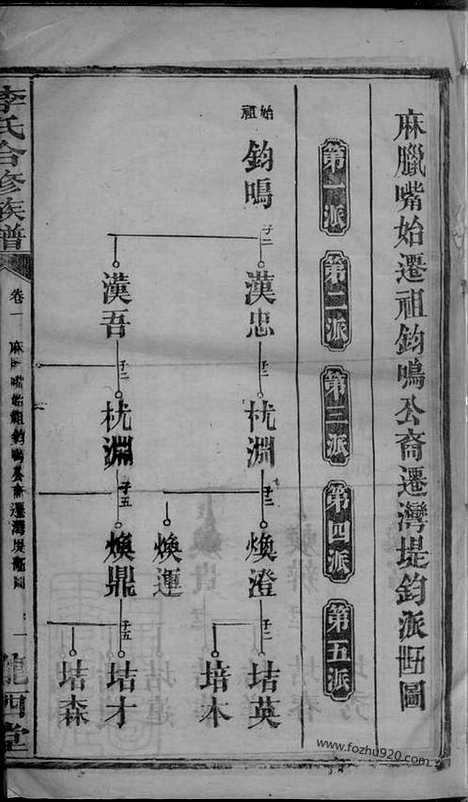 麻臘嘴始遷祖鈞鳴公裔遷灣堤鈞派世圖
第一派
第二派
第三派
第四派
第五派
始祖
鈞鳴
子二
漢忠
子二
枕淵
子二
煥澄
子二
培英
培本
漢吾
子二
枕淵
子五
煥鼎
煥運
子五
培才
培森
李氏合修族譜
卷一
麻臘嘴始祖鈞鳴公裔遷灣堤鈞圖
一
隴西堂
www.fozhu920.com